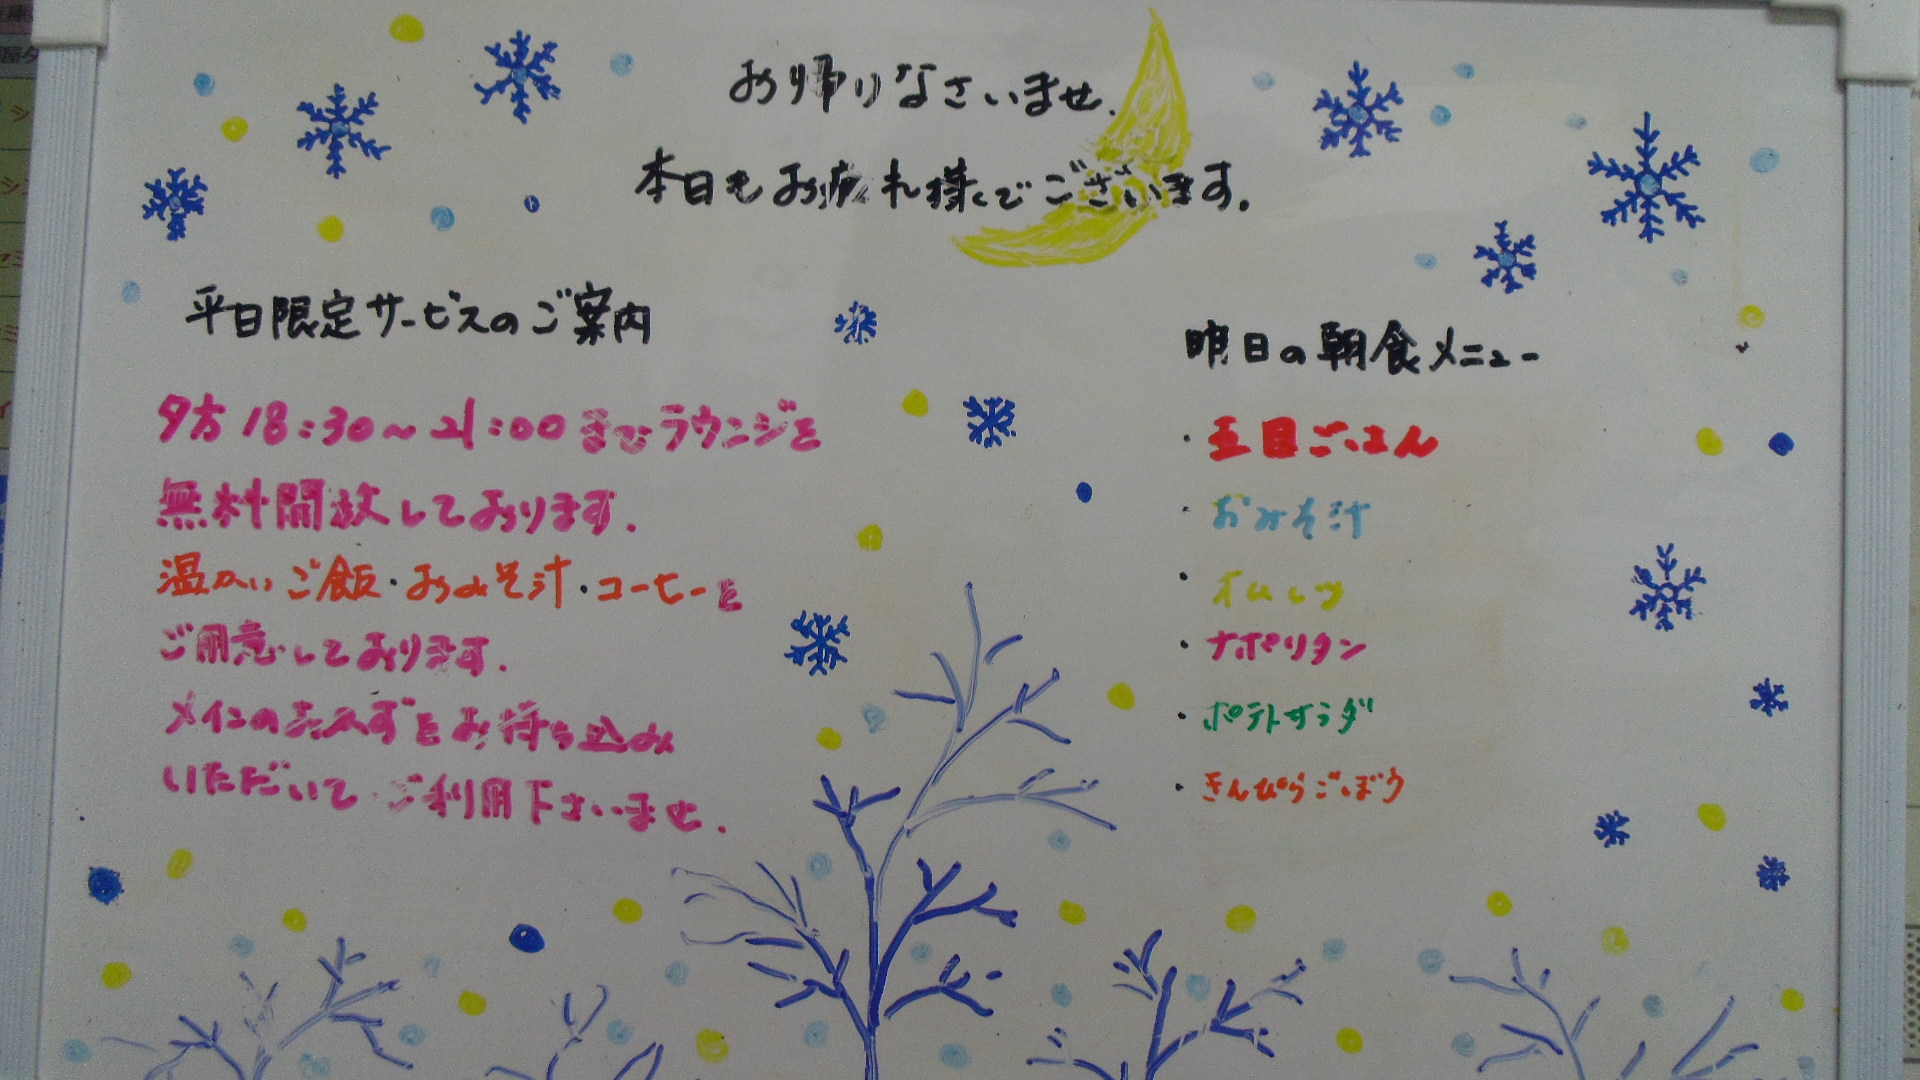 お帰りなさいませ.
本日もお疲れ様でございます。
平日限定サービスのご案内
夕方18:30～21:00までラウンジを
無料開放しております.
温かいご飯・おみそ汁・コーヒーを
ご用意しております.
メインのおかずをお持ち込み
いただいて ご利用下さいませ.
明日の朝食メニュー
・五目ごはん
・おみそ汁
・オムレツ
・ナポリタン
・ポテトサラダ
・きんぴらごぼう